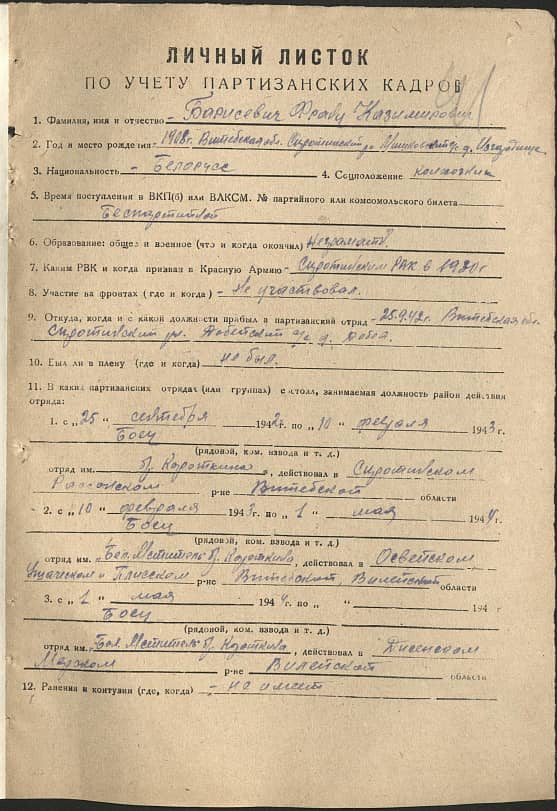 ЛИЧНЫЙ ЛИСТОК
ПО УЧЕТУ ПАРТИЗАНСКИХ КАДРОВ
1. Фамилия, имя и отчество – Барисевич Казимирович
2. Год и место рождения 1908г. Витебская обл. Сиротинский
3. Национальность – Белорусс 4. Соцположение колхозник
5. Время поступления в ВКП(б) или ВЛКСМ. № партийного или комсомольского билета
Беспартийной
6. Образование: общее и военное (что и когда окончил) Неграмотн.
7. Каким РВК и когда призван в Красную Армию – Сиротинским РВК в 1930г
8. Участие на фронтах (где и когда) – Не участвовал.
9. Откуда, когда и с какой должности прибыл в партизанский отряд – 25.9.42г. Витебская обл.
Сиротинский
10. Был ли в плену (где и когда) не был.
11. В каких партизанских отрядах (или группах) состоял, занимаемая должность район действия
отряда:
1. с „25 “ сентября 1942г. по „10 “ февраля 1943г.
Боец
(рядовой, ком. взвода и т. д.)
отряд им. Короткина, действовал в Сиротинском
Рассонском р-не Витебской области
2. с „10 “ февраля 1943г. по „1 “ мая 1944г.
Боец
(рядовой, ком. взвода и т. д.)
отряд им. Мститель Короткина, действовал в Освейском
Ушачском и Плисском р-не Витебской, Вилейской области
3. с „1 “ мая 1944г. по „ “ 194 г
Боец
(рядовой, ком. взвода и т. д.)
отряд им. Мститель Короткина, действовал в Дисенском
р-не Вилейской области
12. Ранения и контузии (где, когда) – не имеет